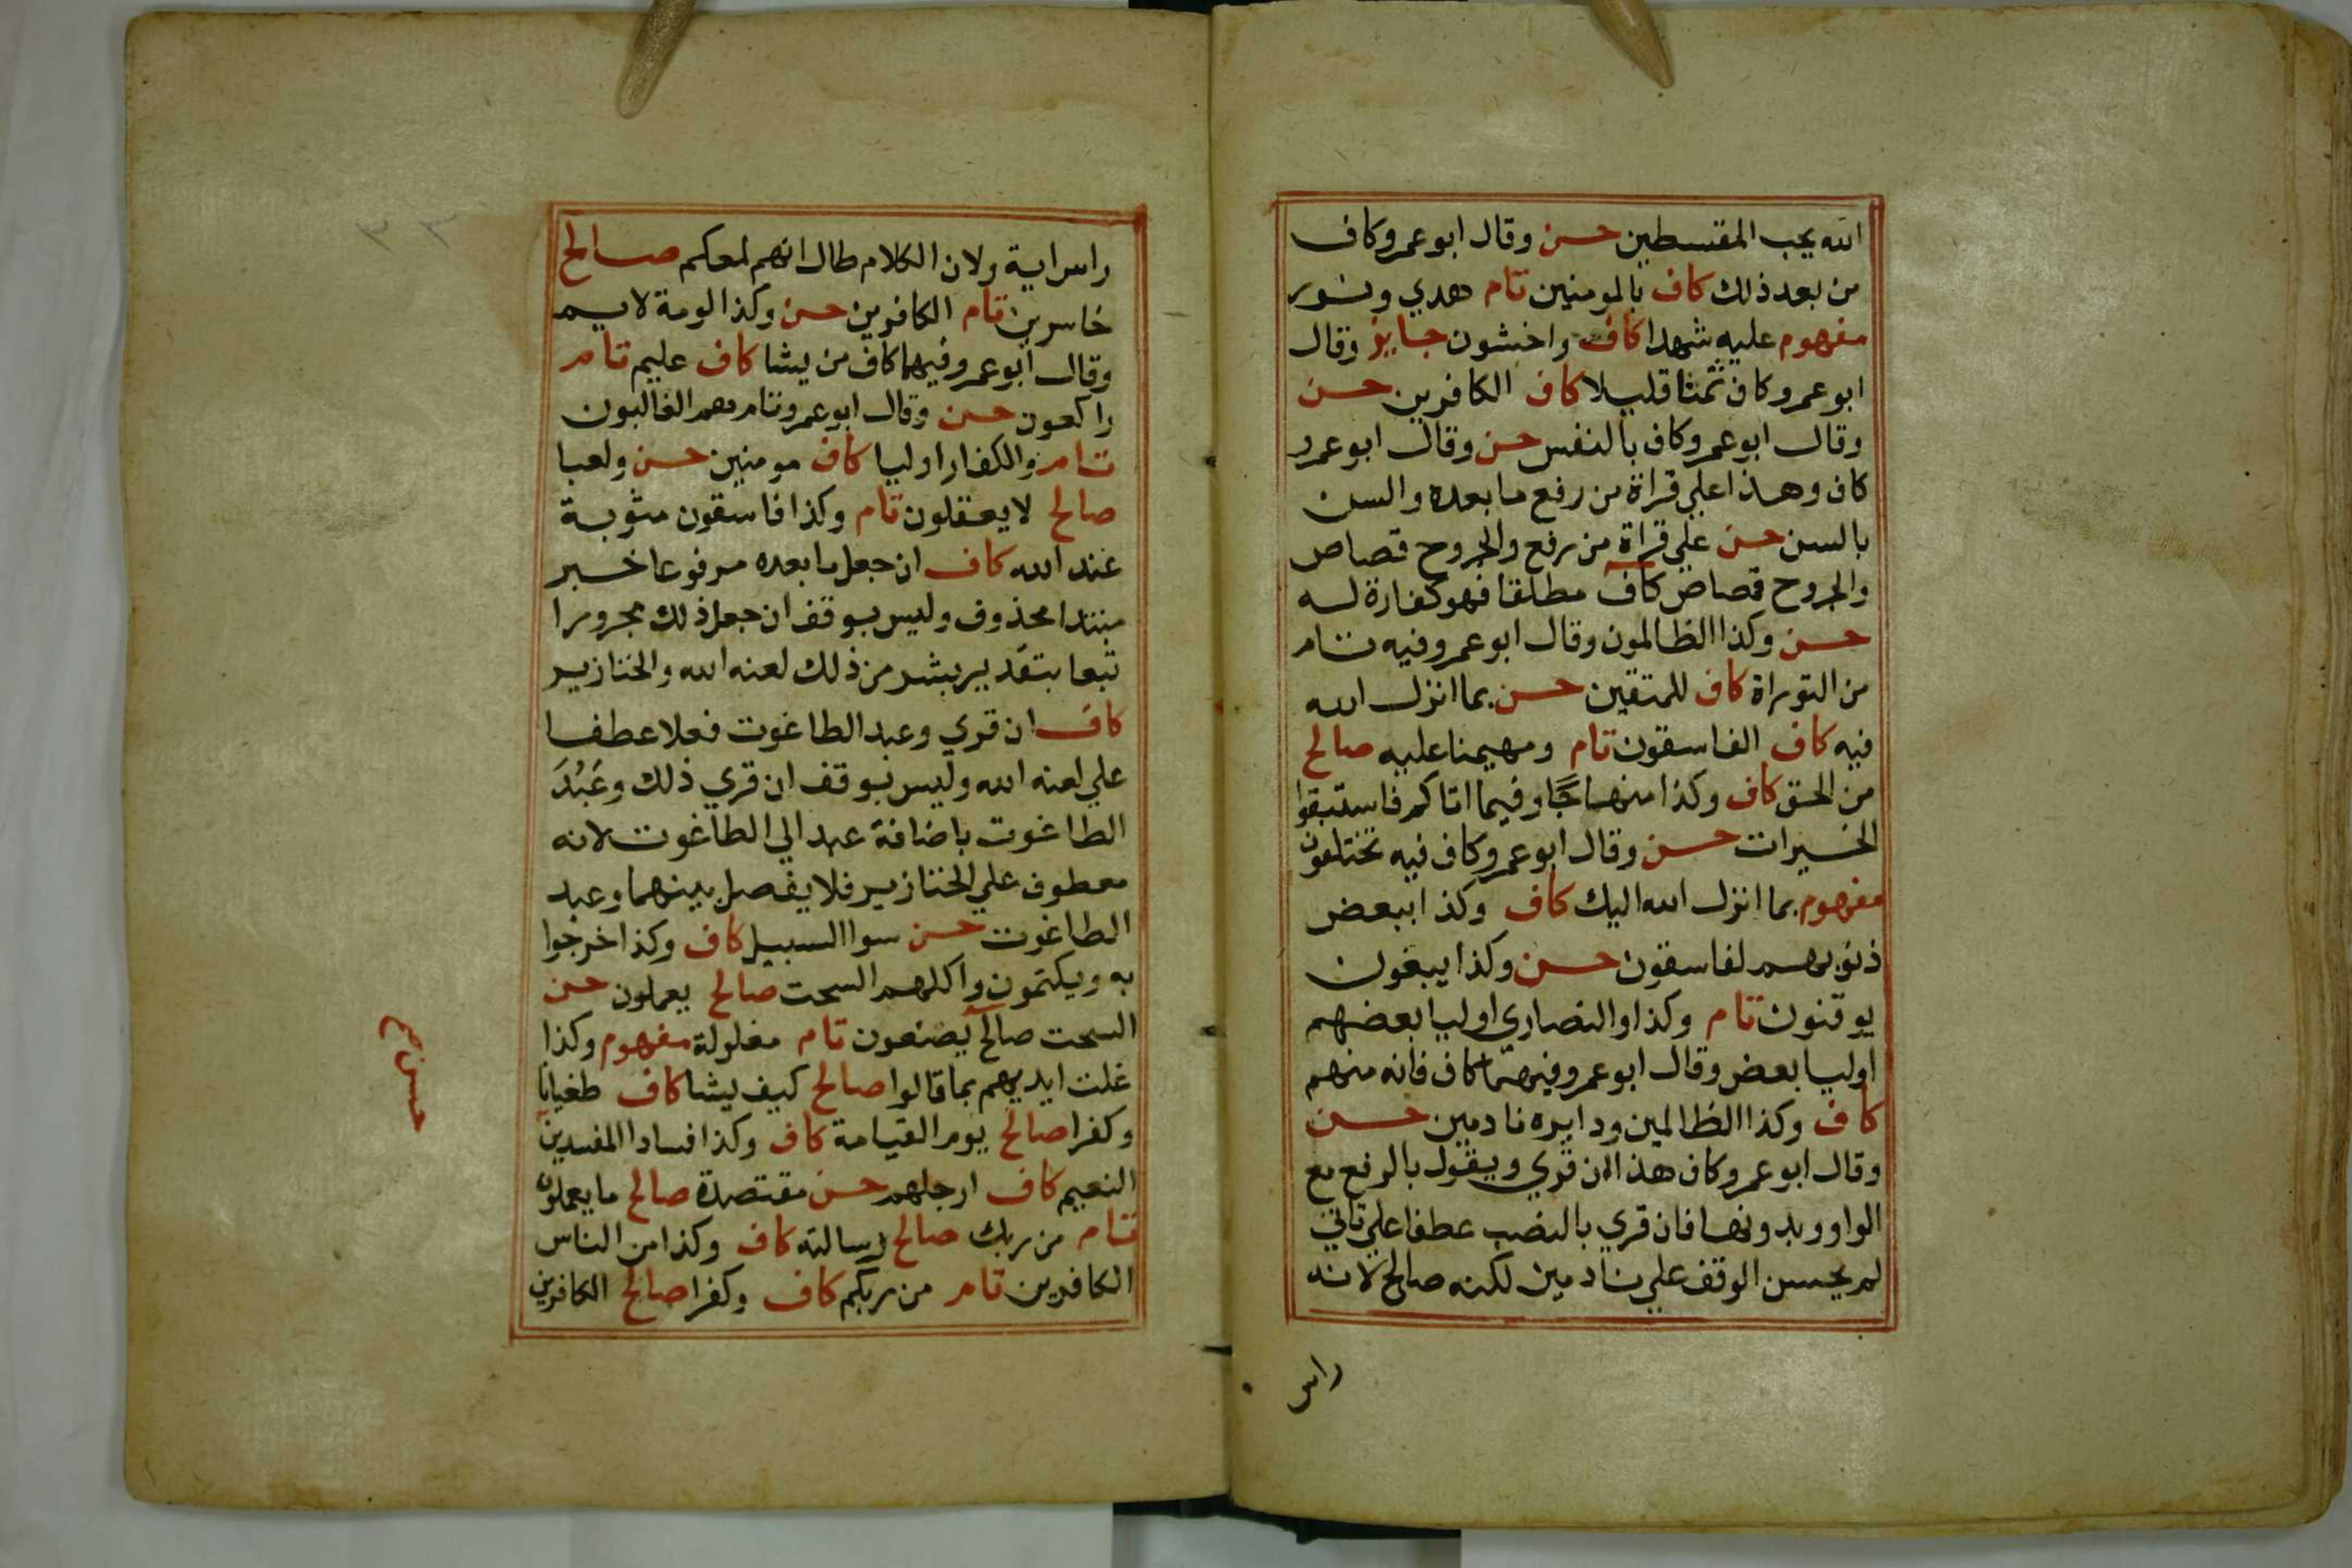 الله يحب المقسطين حسن وقال ابو عمرو كاف
من بعد ذلك كاف بالمومنين تام هدي ونور
مفهوم عليه شهدا كاف واخشون جايز وقال
ابو عمرو كاف ثمنا قليلا كاف الكافرين حسن
وقال ابو عمرو كاف بالنفس حسن وقال ابو عمرو
كاف وهذا علي قراة من رفع ما بعده والسن
بالسن حسن علي قراة من رفع والجروح قصاص
والجروح قصاص كاف مطلقا فهو كفارة له
حسن وكذا الظالمون وقال ابو عمرو فيه تام
من التوراة كاف للمتقين حسن بما انزل الله
فيه كاف الفاسقون تام ومهيمنا عليه صالح
من الحق كاف وكذا منهاجا وفيما اتاكم فاستبقوا
الخيرات حسن وقال ابو عمرو كاف فيه تختلفون
مفهوم بما انزل الله اليك كاف وكذا ببعض
ذنوبهم لفاسقون حسن وكذا يبغون
يوقنون تام وكذا والنصاري اوليا بعضهم
اوليا بعض وقال ابو عمرو فيهما كاف فانه منهم
كاف وكذا الظالمين ودايره نادمين حسن
وقال ابو عمرو كاف هذا ان قري ويقول بالرفع مع
الواو وبدونها فان قري بالنصب عطفا علي ياتي
لم يحسن الوقف علي نادمين لكنه صالح لانه
راس
راس اية ولان الكلام طال انهم لمعكم صالح
خاسرين تام الكافرين حسن وكذا لومة لايم
وقال ابو عمرو فيهما كاف من يشا كاف عليم تام
راكعون حسن وقال ابو عمرو تام هم الغالبون
تام والكفار اوليا كاف مومنين حسن ولعبا
صالح لا يعقلون تام وكذا فاسقون مثوبة
عند الله كاف ان جعل ما بعده مرفوعا خبر
مبتدا محذوف وليس بوقف ان جعل ذلك مجرورا
تبعا بتقدير بشر من ذلك لعنه الله والخنازير
كاف ان قري وعبد الطاغوت فعلا عطفا
علي لعنه الله وليس بوقف ان قري ذلك وعَبُدَ
الطاغوت باضافة عبد الي الطاغوت لانه
معطوف علي الخنازير فلا يفصل بينهما وعبد
الطاغوت حسن سوا السبيل كاف وكذا خرجوا
به ويكتمون واكلهم السحت صالح يعملون حسن
السحت صالح يصنعون تام مغلولة مفهوم وكذا
غلت ايديهم بما قالوا صالح كيف يشا كاف طغيانا
وكفرا صالح يوم القيامة كاف وكذا فسادا المفسدين
النعيم كاف ارجلهم حسن مقتصدة صالح ما يعملون
تام من ربك صالح رسالته كاف وكذا من الناس
الكافرين تام من ربكم كاف وكفرا صالح الكافرين
حسن صح